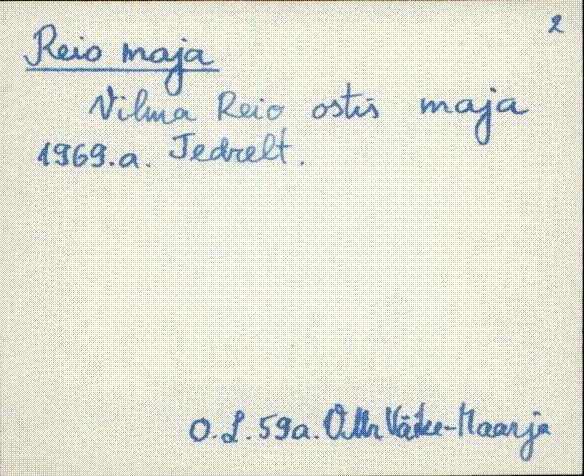 2
Reio maja
Vilma Reio ostis maja
1969.a. Jedrelt.
O.L. 59a. Väike-Maarja